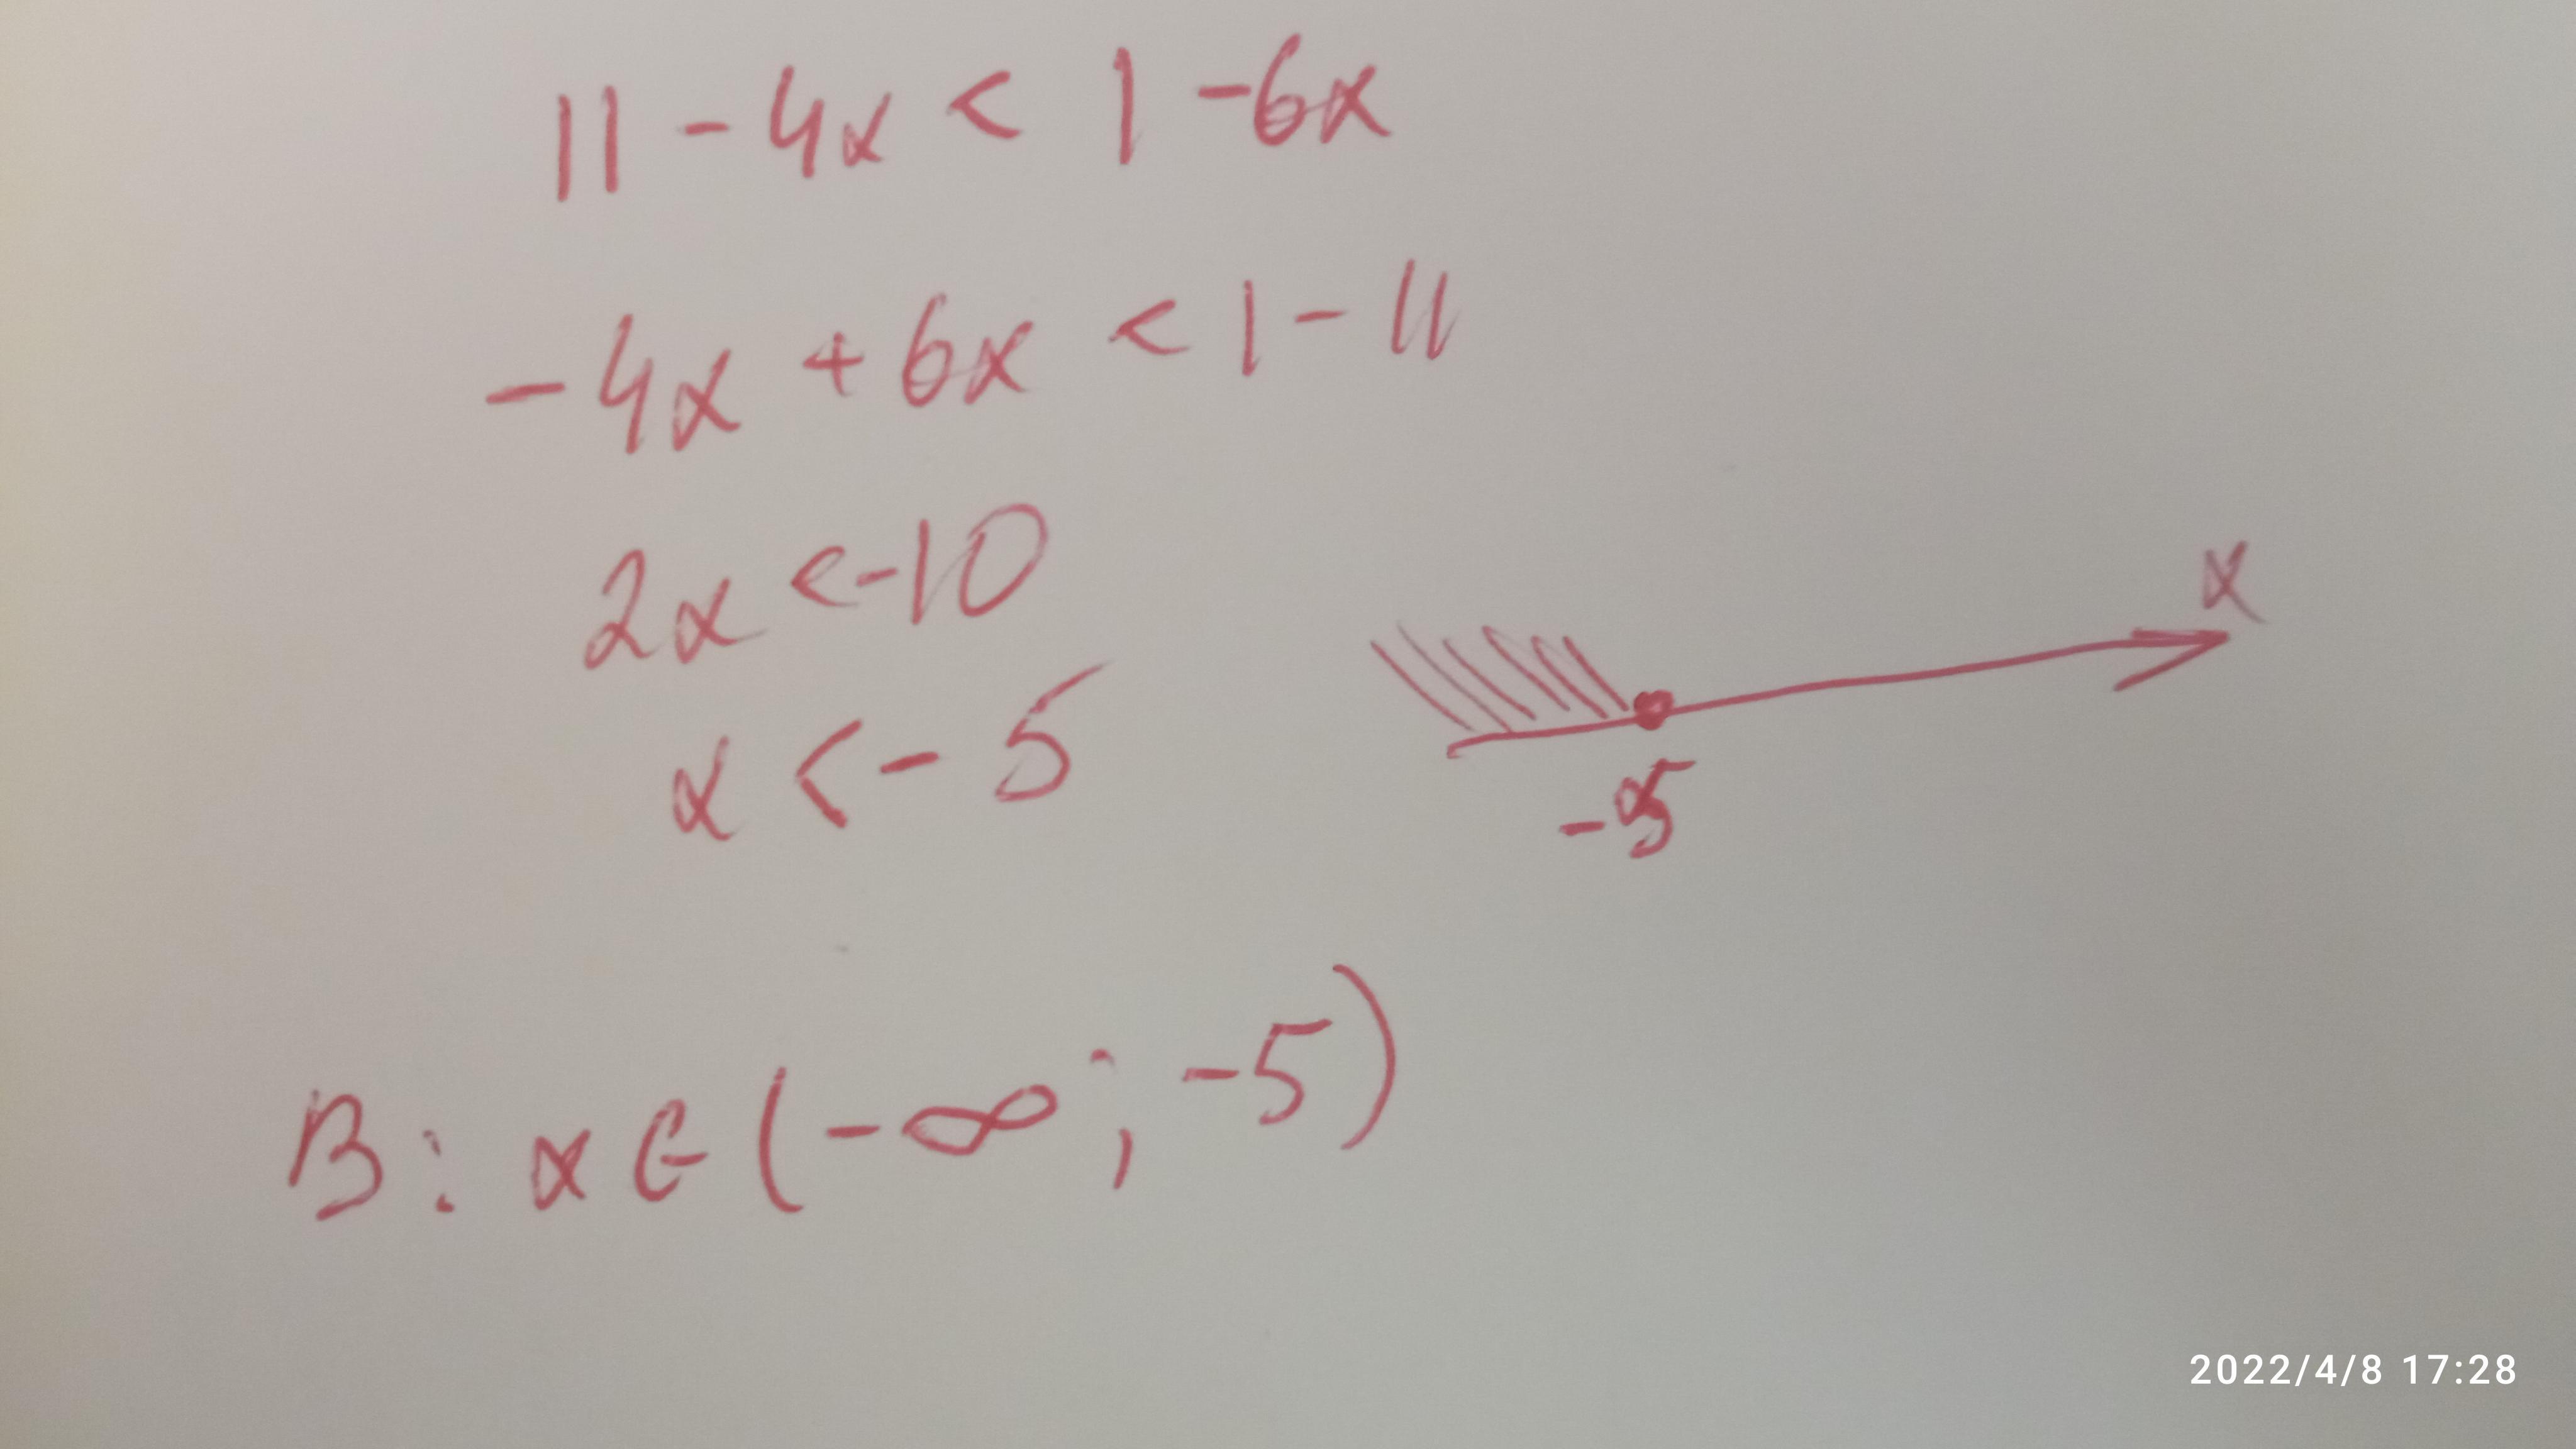 11 - 4x < 1 - 6x
-4x + 6x < 1 - 11
2x < -10
x < -5
x
-5
В: x ∈ (-∞; -5)
2022/4/8 17:28